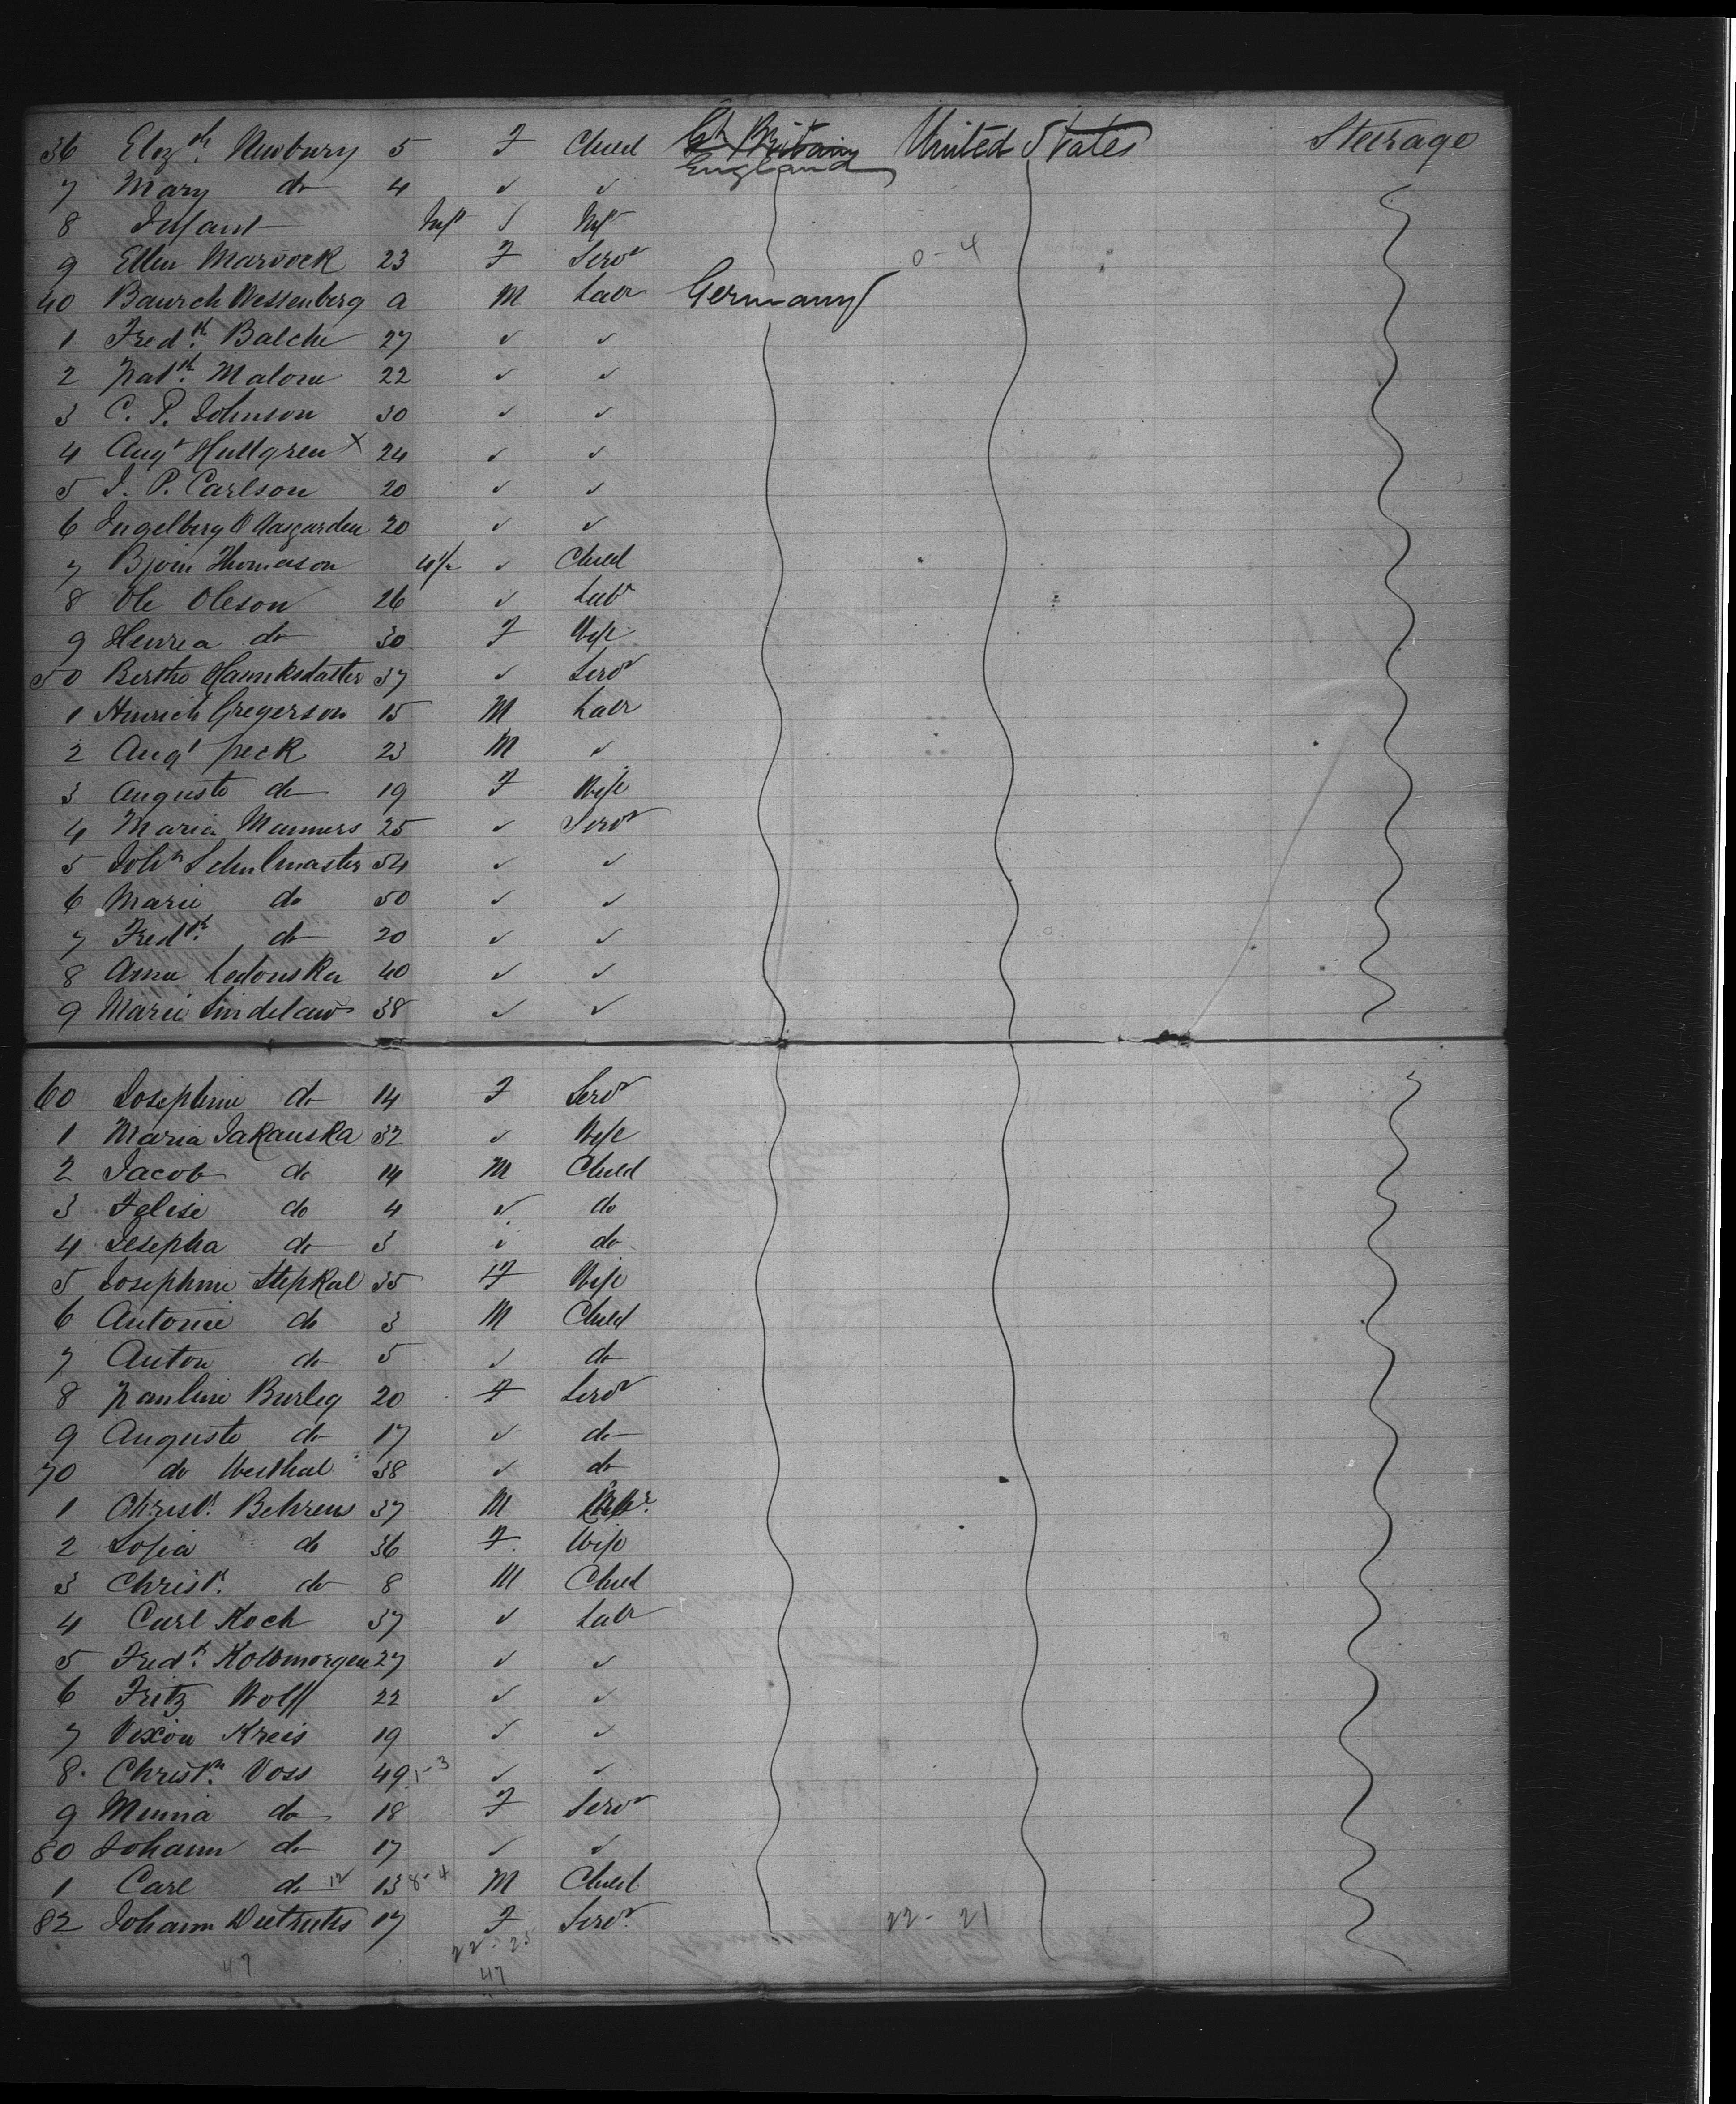 36 Elizth. Newbury 5 F Child Gt Britain England United States Steerage
7 Mary do 4 ✓ ✓
8 Infant Inft ✓ Inft
9 Ellen Marvock 23 F Servt 0-4
40 Baurch Wessenberg a M Labr Germany
1 Fredk. Balche 27 ✓ ✓
2 Patk. Malone 22 ✓ ✓
3 C. P. Johnson 30 ✓ ✓
4 Augt Hultgren x 24 ✓ ✓
5 J. P. Carlson 20 ✓ ✓
6 Ingelberg O Aasgarden 20 ✓ ✓
7 Bjoin Thomason ✓ Child
8 Ole Oleson 26 ✓ Labr
9 Henrea do 30 F Wife
50 Bertha 37 ✓ Servt
1 Hinrich Gregerson 15 M Labr
2 Augt Peck 23 M ✓
3 Auguste do 19 F Wife
4 Maria Manners 25 ✓ Servt
5 John Schulmaster 54 ✓ ✓
6 Marie do 50 ✓ ✓
7 Fredk. do 20 ✓ ✓
8 Anna Ledonska 40 ✓ ✓
9 Marie Sindelaw 38 ✓ ✓
60 Josephine do 14 F Servt
1 Maria Jakauska 32 ✓ Wife
2 Jacob do 14 M Child
3 do 4 ✓ do
4 Josepha do 3 do
5 Josephine Stepkal 35 F Wife
6 Antonie do 3 M Child
7 Anton do 5 ✓ do
8 Pauline Burleg 20 F Servt
9 Auguste do 17 ✓ do
70 do Westhal 38 ✓ do
1 Christn. Behrens 37 M
2 Sofia do 36 F. Wife
3 Christn. do 8 M Child
4 Carl Koch 37 ✓ Labr
5 Fredk. Kolbmorgen 27 ✓ ✓
6 Fritz Wolff 22 ✓ ✓
7 Vixion Kreis 19 ✓ ✓
8. Christn. Voss 49 1-3 ✓ ✓
9 Minna do 18 F Servt
80 Johann do 17 ✓ ✓
1 Carl do 12 13 8-4 M Child
82 Johann 17 F Servt. 22-21
22-25
47 47